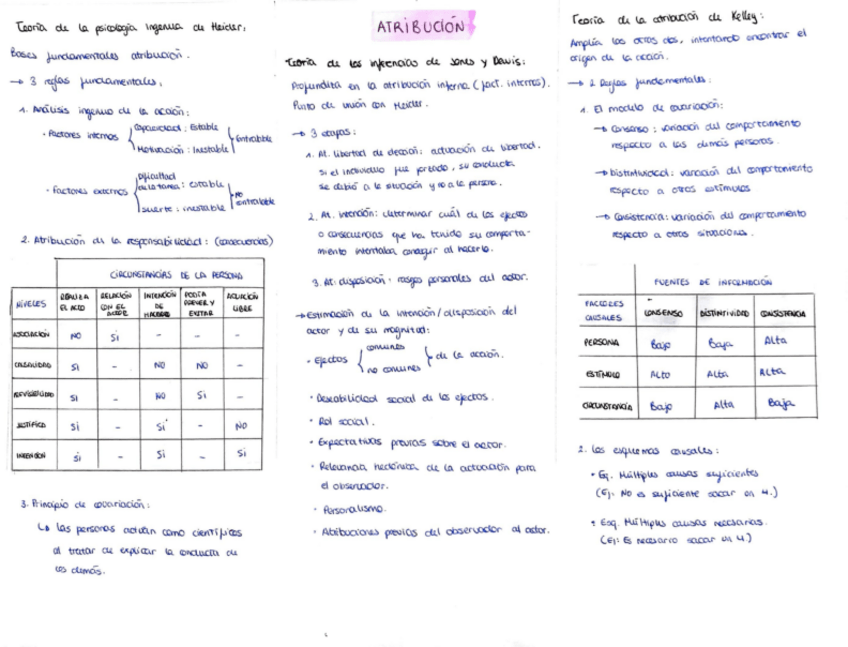 ATRIBUCIÓN
Teoría de la psicología ingenua de Heider:
Bases fundamentales atribución.
→ 3 reglas fundamentales:
1. Análisis ingenuo de la acción:
· Factores internos
Capacidad: Estable
Motivación: Inestable
Controlable
· Factores externos
Dificultad de la tarea: estable
suerte: inestable
no controlable
2. Atribución de la responsabilidad: (consecuencias)
CIRCUNSTANCIAS DE LA PERSONA
NIVELES REALIZA EL ACTO RELACIÓN CON EL ACTOR INTENCIÓN DE HACERLO PODÍA PREVER Y EVITAR ACTUACIÓN LIBRE
ASOCIACIÓN NO Si - - -
CAUSALIDAD SI - NO NO -
PREVISIBILIDAD SI - NO Si -
JUSTIFICA Si - Si - NO
INTENCIÓN Si - Si - Si
3. Principio de covariación:
↳ Las personas actúan como científicos
al tratar de explicar la conducta de
los demás.
Teoría de las inferencias de Jones y Davis:
Profundita en la atribución interna (fact. internos).
Punto de unión con Heider.
→ 3 etapas:
1. At. libertad de decisión: actuación de libertad.
Si el individuo fue forzado, su conducta
se debió a la situación y no a la persona.
2. At. intención: determinar cuál de los efectos
o consecuencias que ha tenido su comporta-
miento intentaba conseguir al hacerlo.
3. At. disposición: rasgos personales del actor.
→ Estimación de la intención/disposición del
actor y de su magnitud:
· Efectos
comunes
no comunes
de la acción.
· Deseabilidad social de los efectos.
· Rol social.
· Expectativas previas sobre el actor.
· Relevancia hedónica de la actuación para
el observador.
· Personalismo.
· Atribuciones previas del observador al actor.
Teoría de la atribución de Kelley:
Amplía las otras dos, intentando encontrar el
origen de la acción.
→ 2 Reglas fundamentales:
1. El modelo de covariación:
→ Consenso: variación del comportamiento
respecto a las demás personas.
→ Distintividad: variación del comportamiento
respecto a otros estímulos
→ Consistencia: variación del comportamiento
respecto a otras situaciones.
FUENTES DE INFORMACIÓN
FACTORES CAUSALES CONSENSO DISTINTIVIDAD CONSISTENCIA
PERSONA Bajo Baja Alta
ESTÍMULO Alto Alta Alta
CIRCUNSTANCIA Bajo Alta Baja
2. Los esquemas causales:
· Eq. Múltiples causas suficientes
(Ej: No es suficiente sacar un 4.)
· Esq. Múltiples causas necesarias.
(Ej: Es necesario sacar un 4)